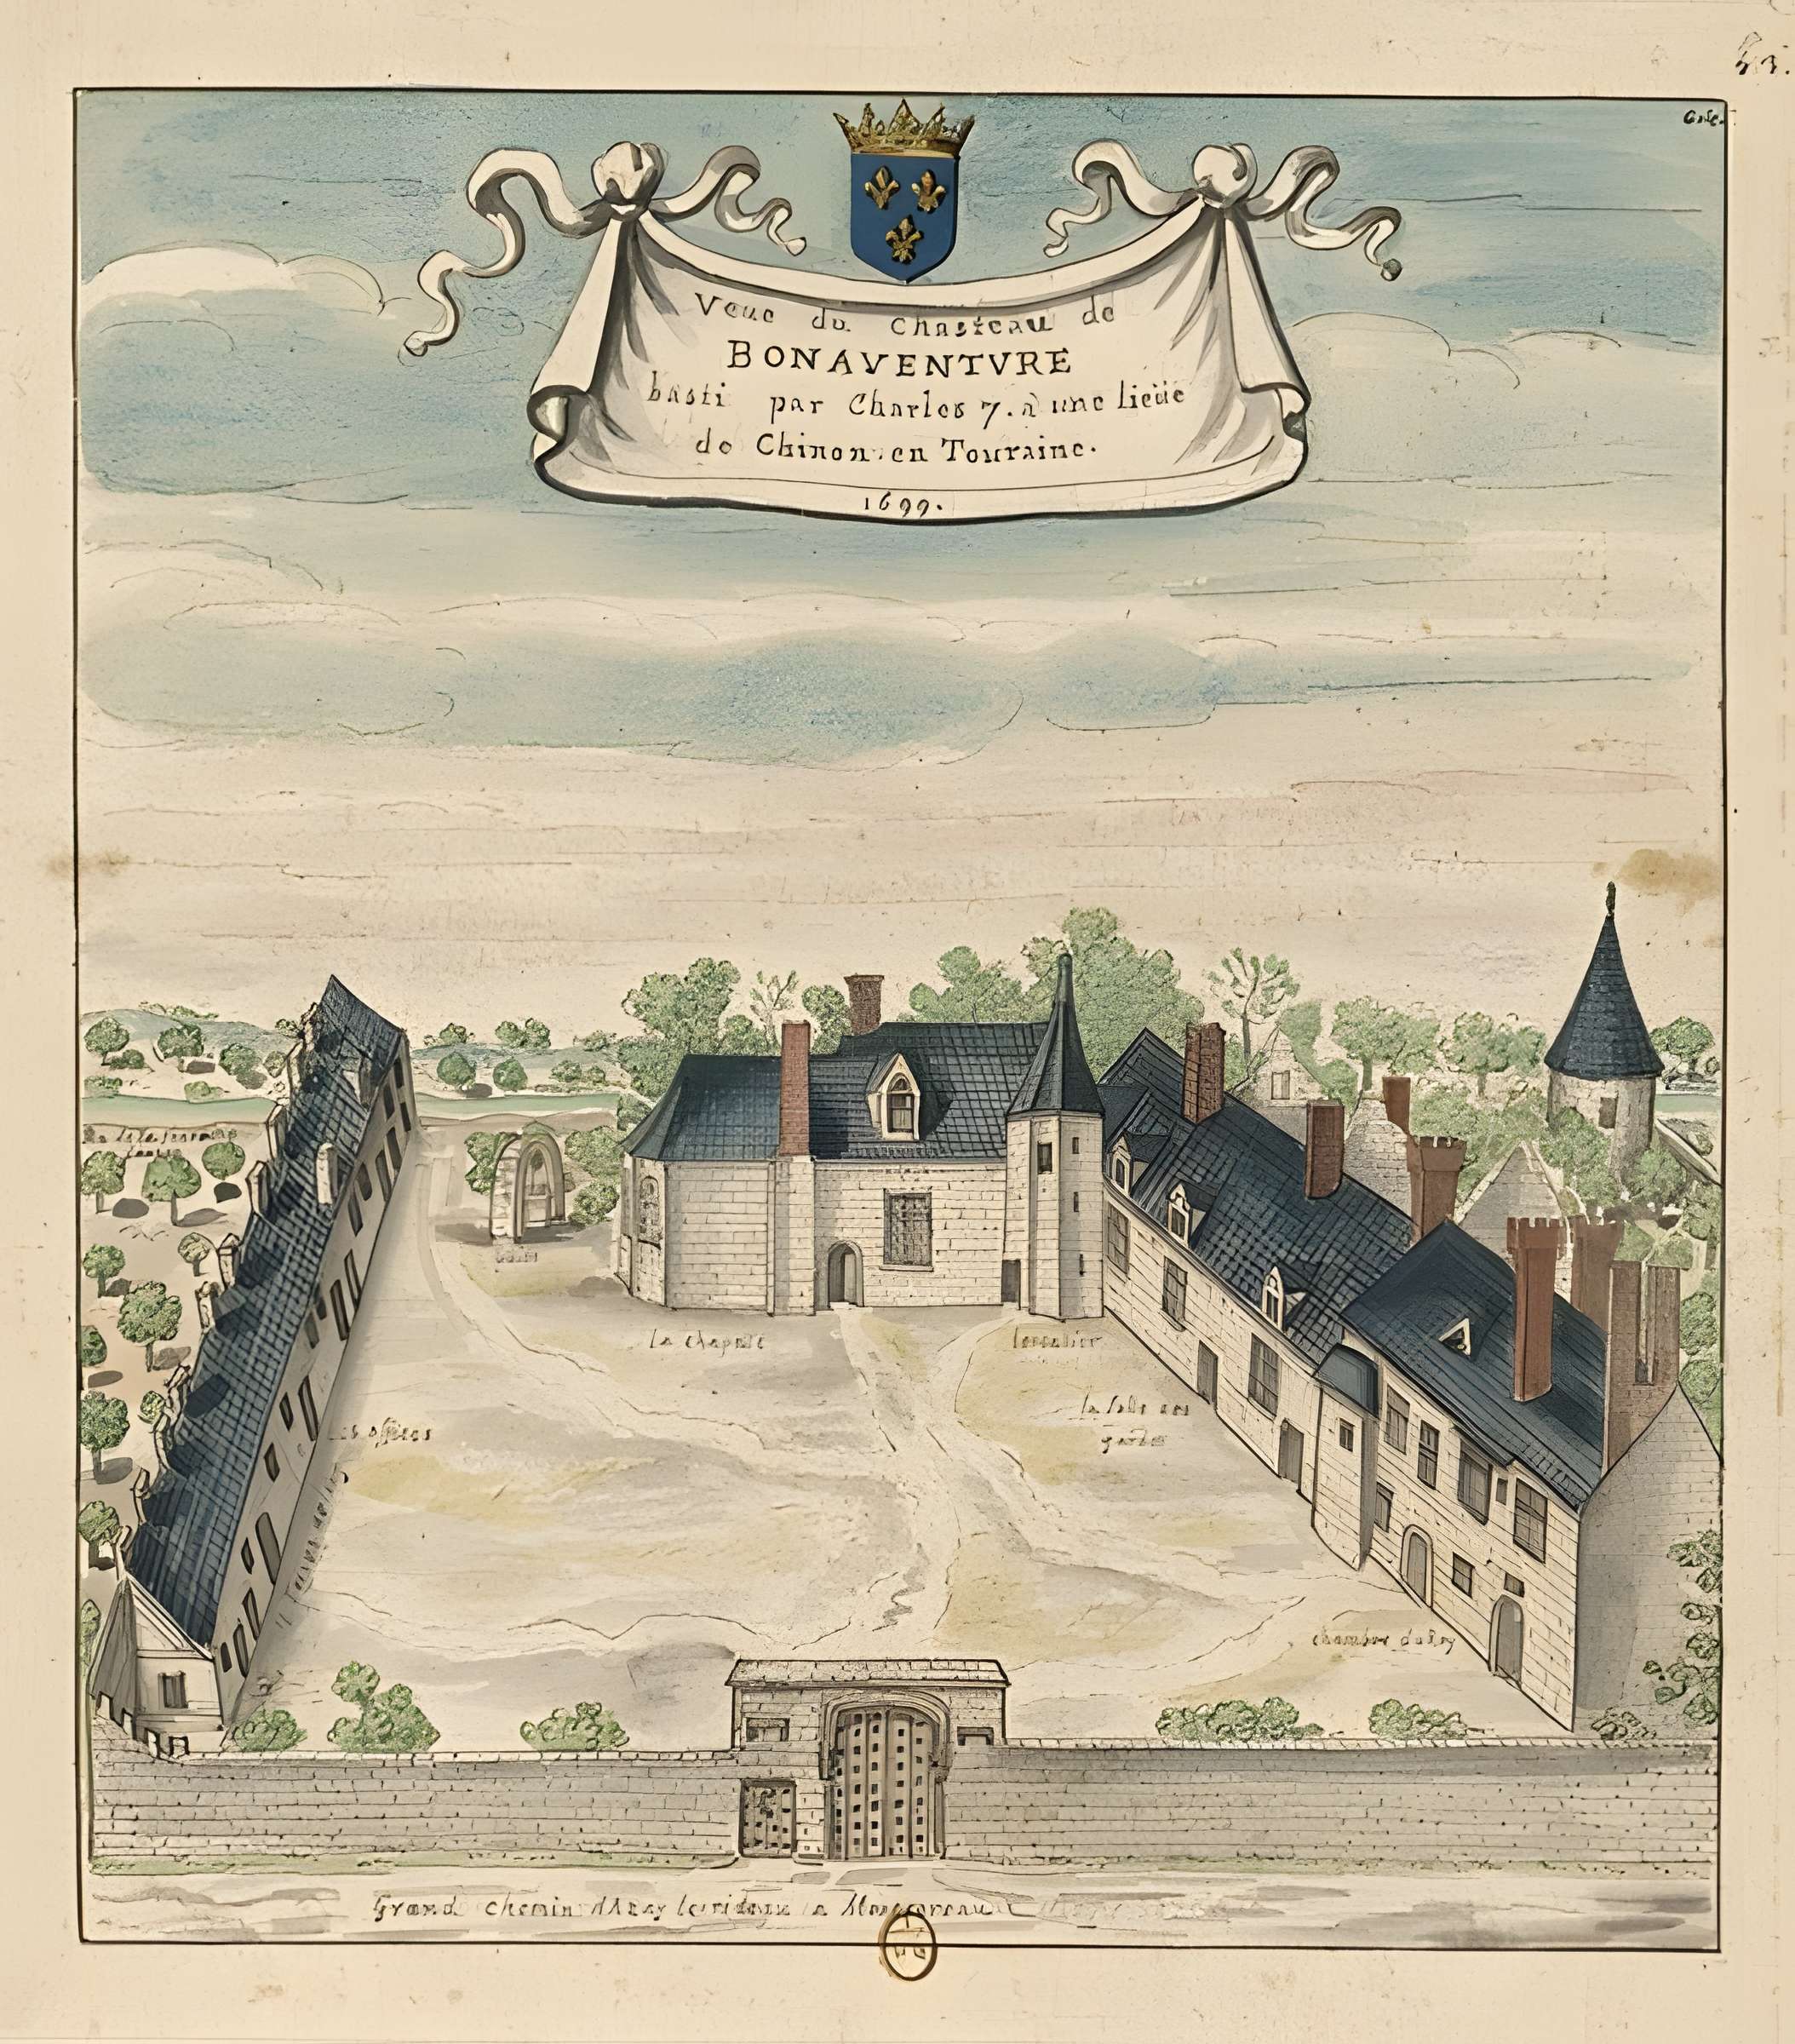 Veue du Chasteau de
BONAVENTVRE
basti par Charles 7. à une lieüe
de Chinon en Touraine.
1699.
la chapele
lescalier
la salle des
gardes
les offices
chambre du Roy
Grand chemin d'Azay le rideau a